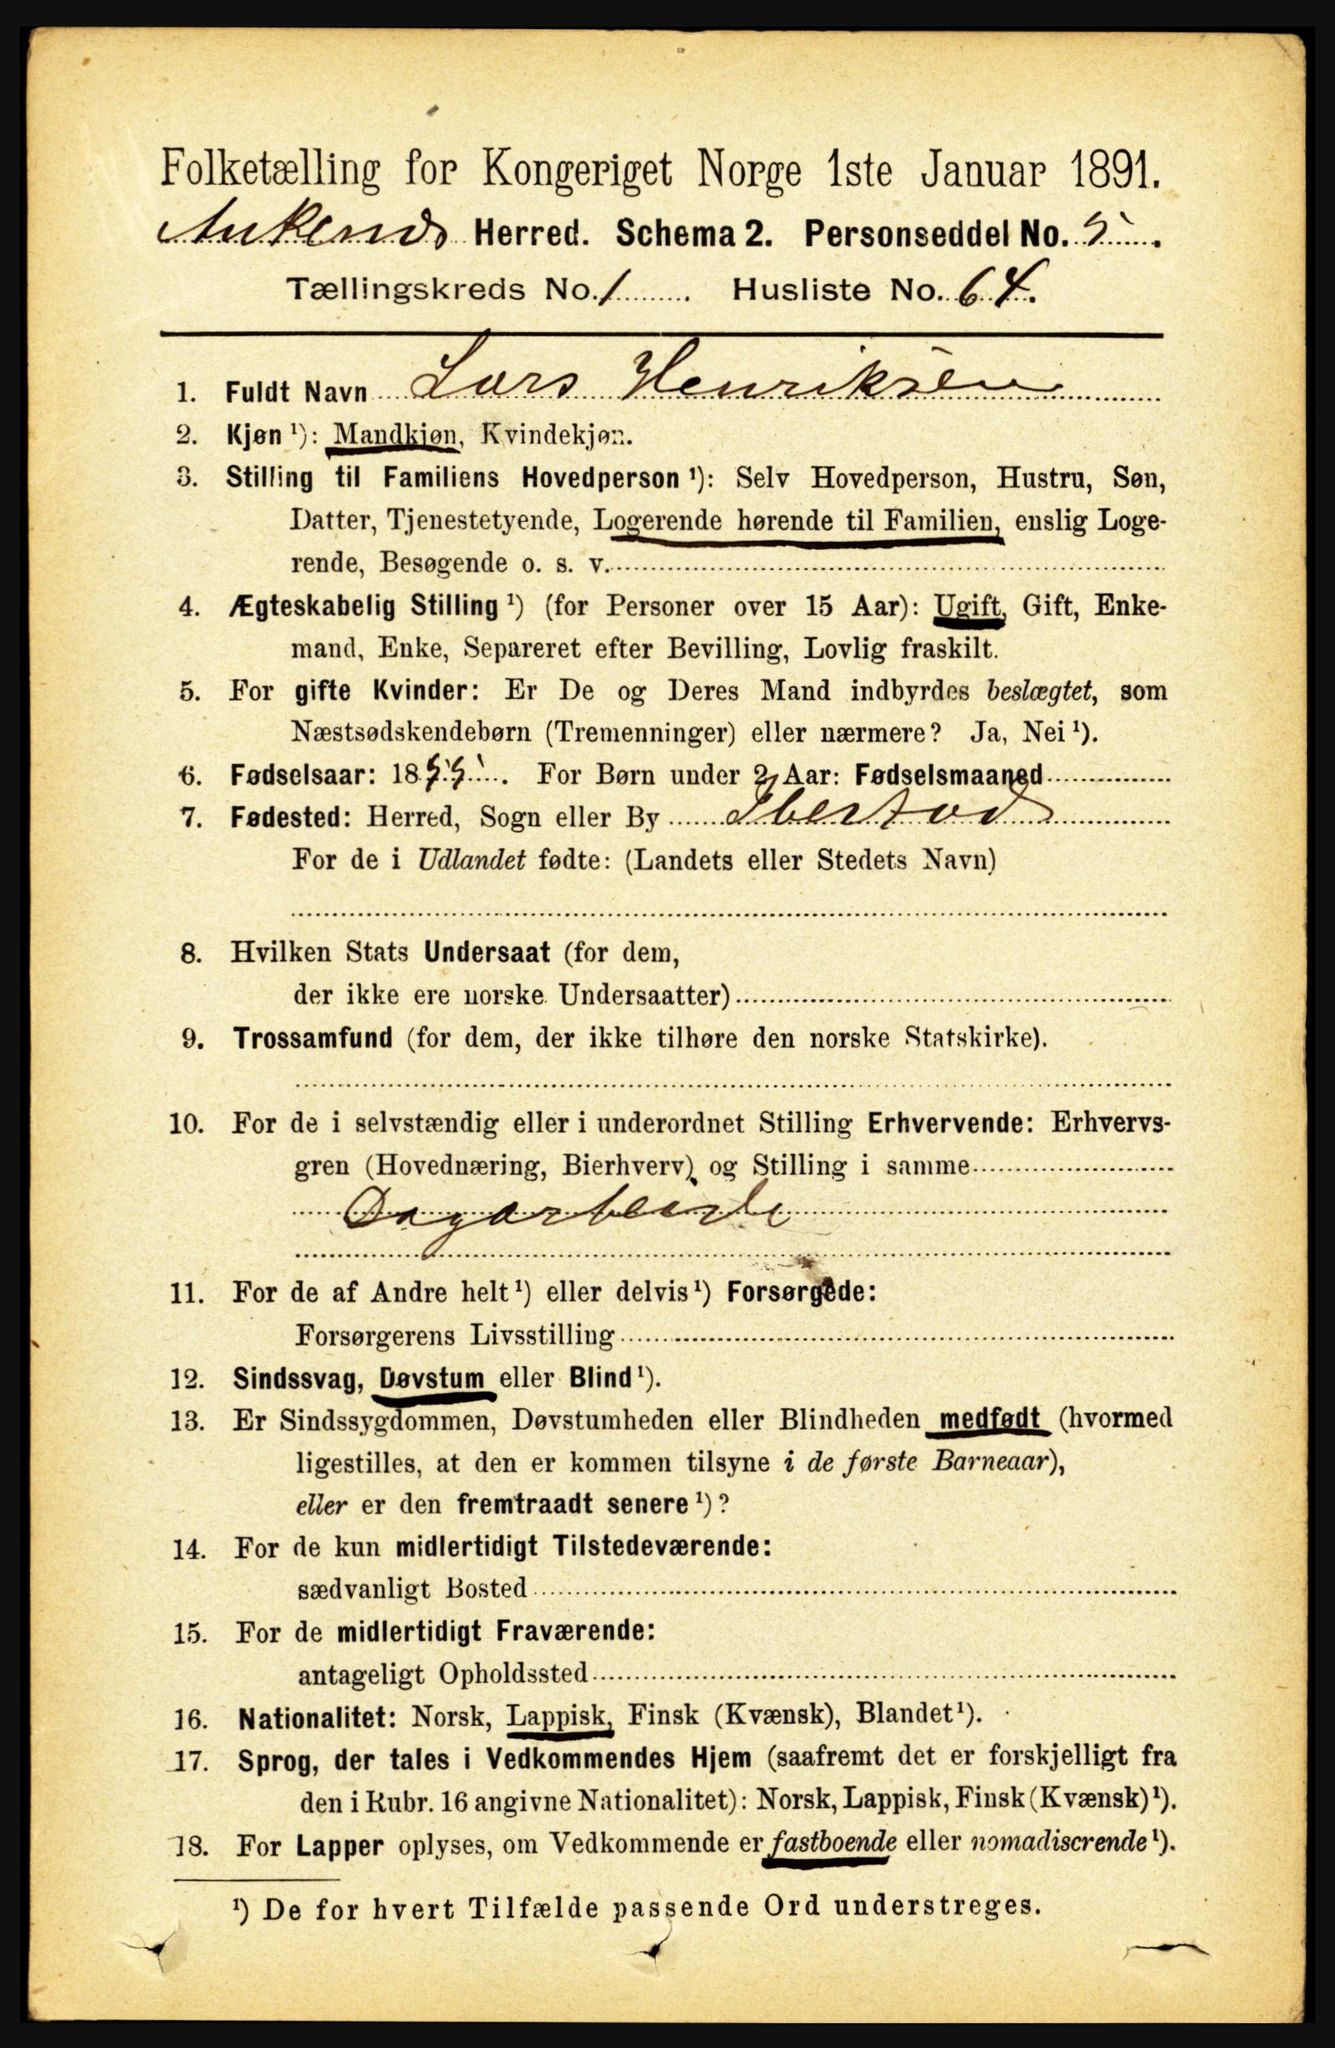 Folketælling for Kongeriget Norge 1ste Januar 1891.
Ankenes Herred. Schema 2. Personseddel No. 5.
Tællingskreds No. 1. Husliste No. 64.
1. Fuldt Navn Lars Henriksen
2. Kjøn ¹): Mandkjøn, Kvindekjøn.
3. Stilling til Familiens Hovedperson ¹): Selv Hovedperson, Hustru, Søn,
Datter, Tjenestetyende, Logerende hørende til Familien, enslig Loge-
rende, Besøgende o. s. v.
4. Ægteskabelig Stilling ¹) (for Personer over 15 Aar): Ugift, Gift, Enke-
mand, Enke, Separeret efter Bevilling, Lovlig fraskilt.
5. For gifte Kvinder: Er De og Deres Mand indbyrdes beslægtet, som
Næstsødskendebørn (Tremenninger) eller nærmere? Ja, Nei ¹).
6. Fødselsaar: 1855. For Børn under 2 Aar: Fødselsmaaned
7. Fødested: Herred, Sogn eller By Ibestad
For de i Udlandet fødte: (Landets eller Stedets Navn)
8. Hvilken Stats Undersaat (for dem,
der ikke ere norske Undersaatter)
9. Trossamfund (for dem, der ikke tilhøre den norske Statskirke).
10. For de i selvstændig eller i underordnet Stilling Erhvervende: Erhvervs-
gren (Hovednæring, Bierhverv) og Stilling i samme
Dagarbeide
11. For de af Andre helt ¹) eller delvis ¹) Forsørgede:
Forsørgerens Livsstilling
12. Sindssvag, Døvstum eller Blind ¹).
13. Er Sindssygdommen, Døvstumheden eller Blindheden medfødt (hvormed
ligestilles, at den er kommen tilsyne i de første Barneaar),
eller er den fremtraadt senere ¹)?
14. For de kun midlertidigt Tilstedeværende:
sædvanligt Bosted
15. For de midlertidigt Fraværende:
antageligt Opholdssted
16. Nationalitet: Norsk, Lappisk, Finsk (Kvænsk), Blandet ¹).
17. Sprog, der tales i Vedkommendes Hjem (saafremt det er forskjelligt fra
den i Rubr. 16 angivne Nationalitet): Norsk, Lappisk, Finsk (Kvænsk) ¹).
18. For Lapper oplyses, om Vedkommende er fastboende eller nomadiserende ¹).
¹) De for hvert Tilfælde passende Ord understreges.